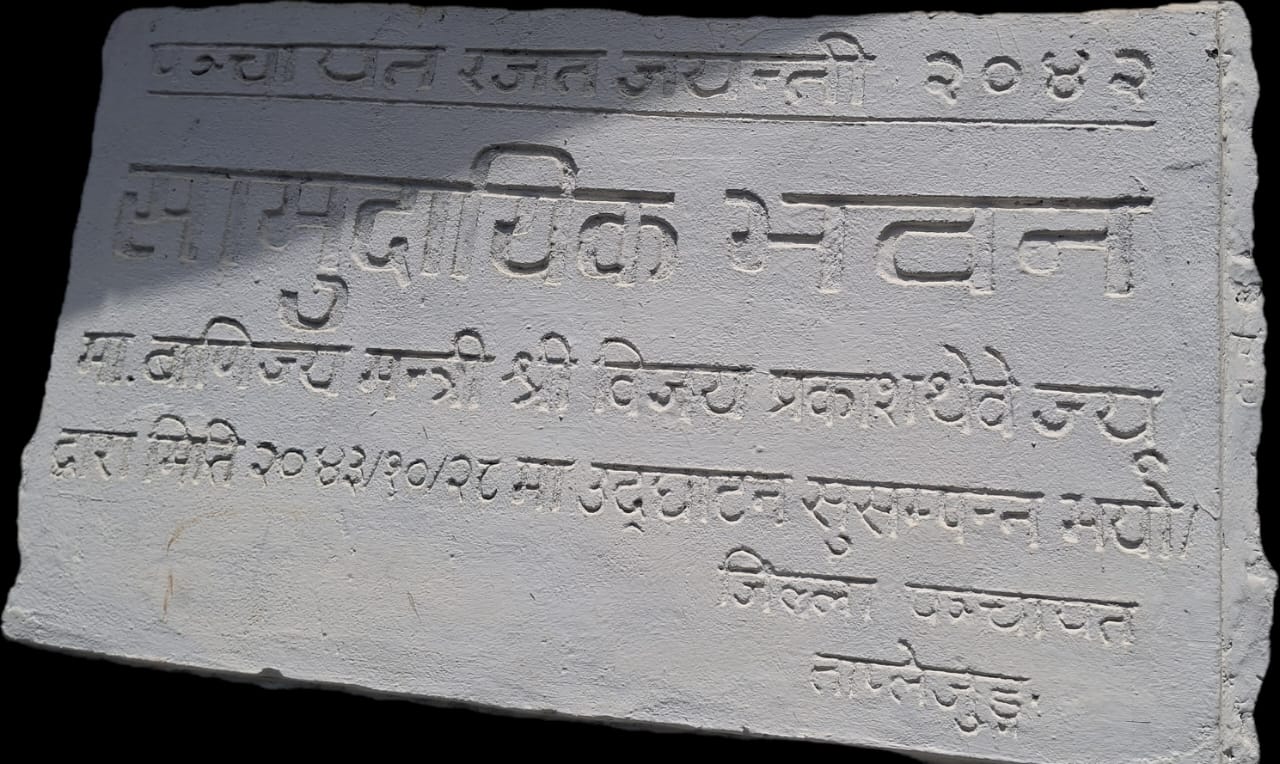 पञ्चायत रजत जयन्ती २०४२
सामुदायिक भवन
मा. बाणिज्य मन्त्री श्री विजय प्रकाश थेवे ज्यू
द्वारा मिति २०४३/१०/२८ मा उद्घाटन सुसम्पन्न भयो/
जिल्ला पञ्चायत
ताप्लेजुङ्ग